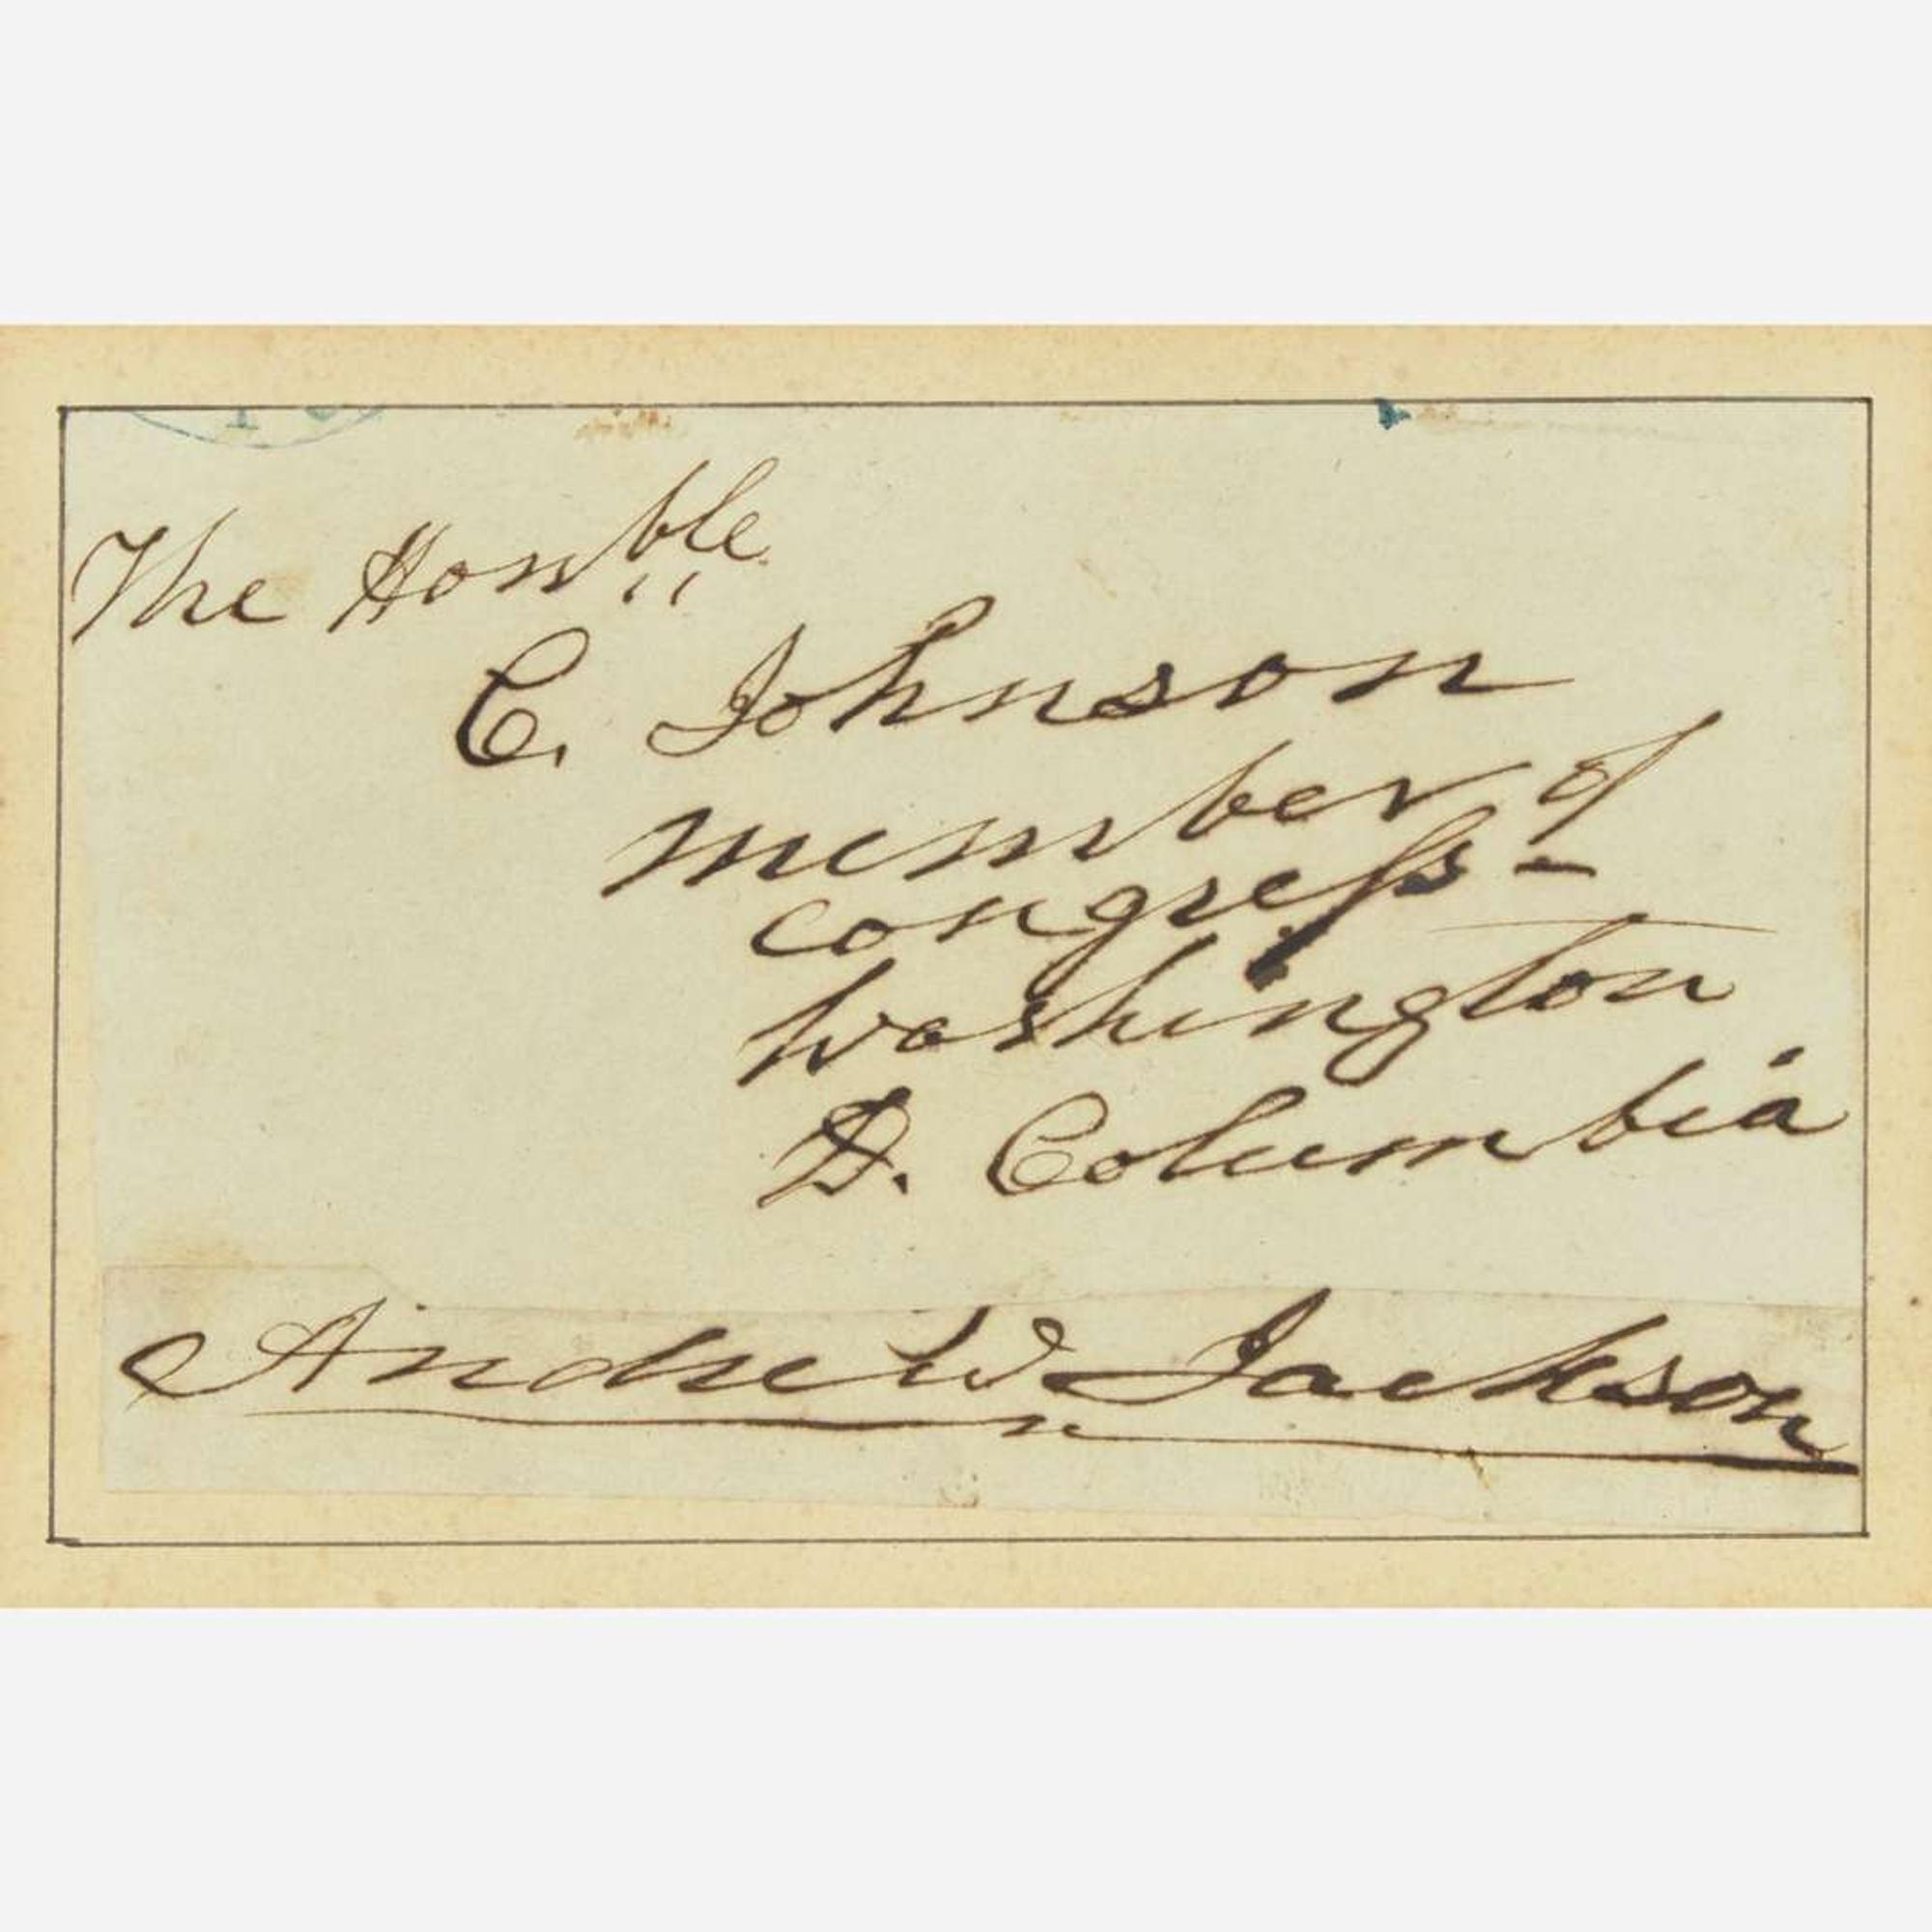 The Honble
C. Johnson
member of
congreſs -
Washington
D. Columbia
Andrew Jackson